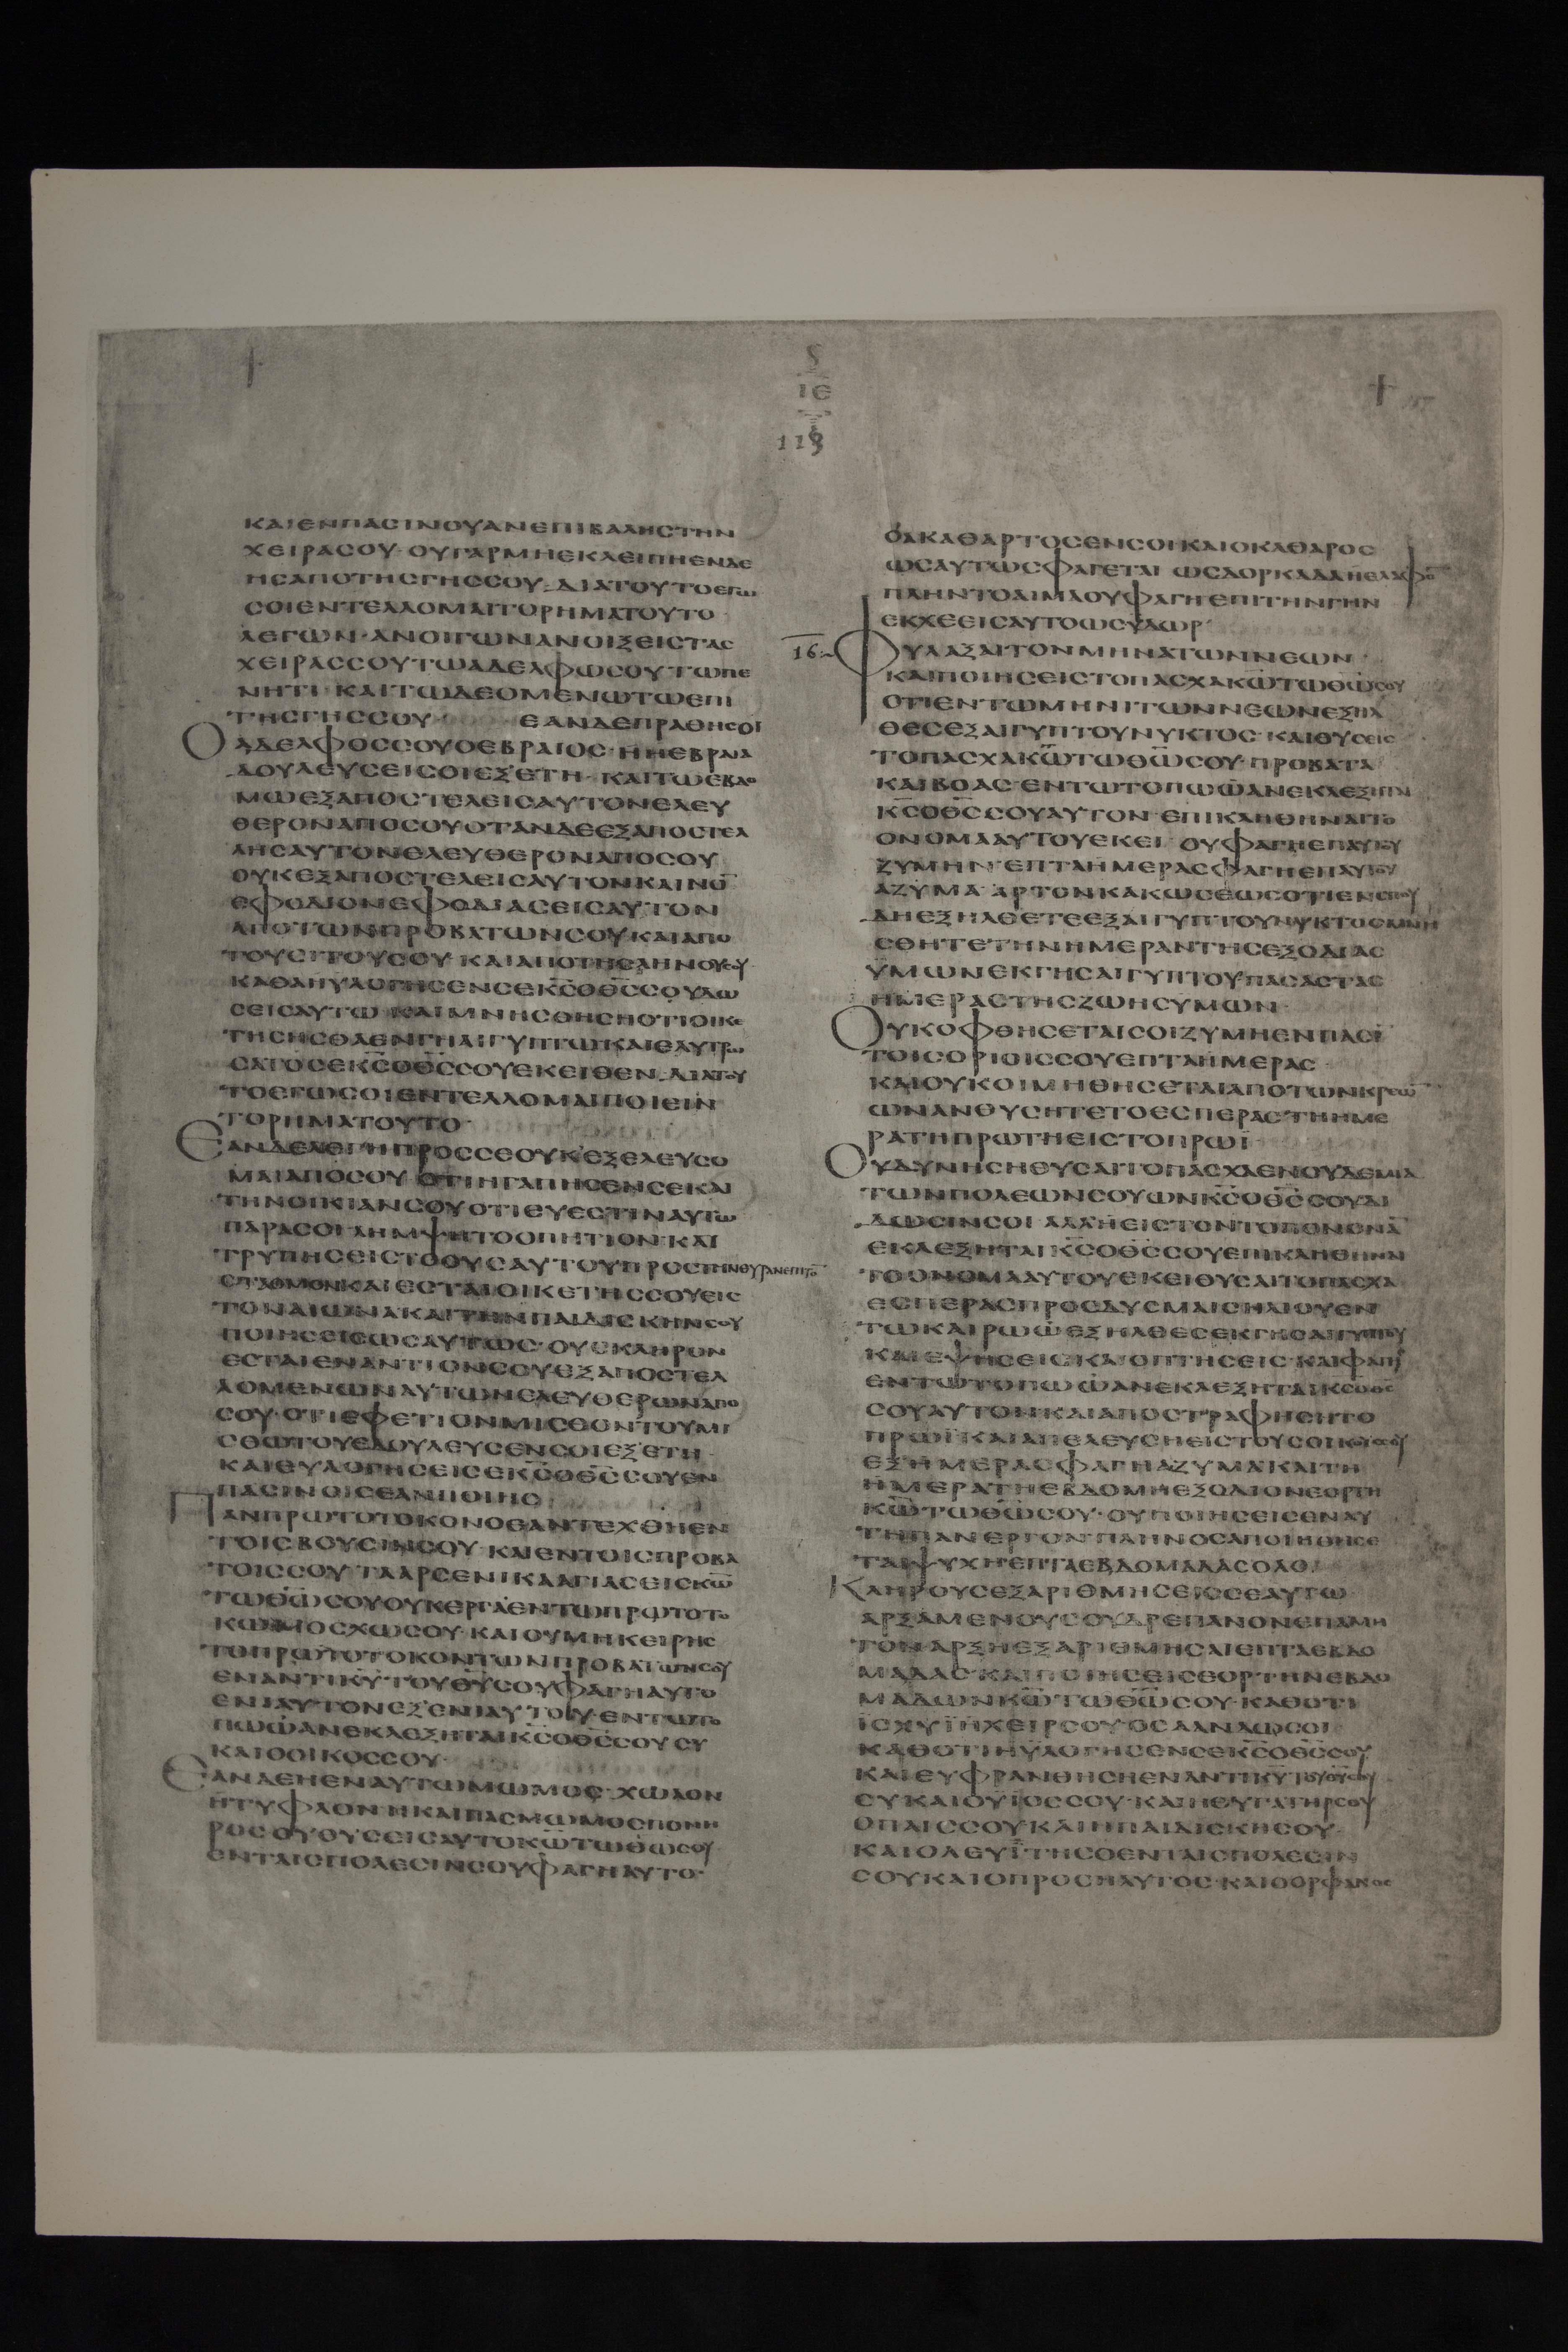 S
ΙΕ
118
ΚΑΙΕΝΠΑΣΙΝΟΥΑΝΕΠΙΒΑΛΗΣΤΗΝ
ΧΕΙΡΑΣΟΥ·ΟΥΓΑΡΜΗΕΚΛΕΙΠΗΕΝΔΕ
ΗΣΑΠΟΤΗΣΓΗΣΣΟΥ·ΔΙΑΤΟΥΤΟΕΓΩ
ΣΟΙΕΝΤΕΛΛΟΜΑΙΤΟΡΗΜΑΤΟΥΤΟ
ΛΕΓΩΝ·ΑΝΟΙΓΩΝΑΝΟΙΞΕΙΣΤΑΣ
ΧΕΙΡΑΣΣΟΥΤΩΑΔΕΛΦΩΣΟΥΤΩΠΕ
ΝΗΤΙ·ΚΑΙΤΩΔΕΟΜΕΝΩΤΩΕΠΙ
ΤΗΣΓΗΣΣΟΥ ΕΑΝΔΕΠΡΑΘΗΣΟΙ
ΟΑΔΕΛΦΟΣΣΟΥΟΕΒΡΑΙΟΣ·ΗΗΕΒΡΑΙΑ
ΔΟΥΛΕΥΣΕΙΣΟΙΕΞΕΤΗ·ΚΑΙΤΩΕΒΔΟ
ΜΩΕΞΑΠΟΣΤΕΛΕΙΣΑΥΤΟΝΕΛΕΥ
ΘΕΡΟΝΑΠΟΣΟΥΟΤΑΝΔΕΕΞΑΠΟΣΤΕΛ
ΛΗΣΑΥΤΟΝΕΛΕΥΘΕΡΟΝΑΠΟΣΟΥ
ΟΥΚΕΞΑΠΟΣΤΕΛΕΙΣΑΥΤΟΝΚΑΙΝΟ̄
ΕΦΟΔΙΟΝΕΦΟΔΙΑΣΕΙΣΑΥΤΟΝ
ΑΠΟΤΩΝΠΡΟΒΑΤΩΝΣΟΥΚΑΙΑΠΟ
ΤΟΥΣΙΤΟΥΣΟΥ·ΚΑΙΑΠΟΤΗΣΛΗΝΟΥΣΟΥ
ΚΑΘΑΗΥΛΟΓΗΣΕΝΣΕΚ̅Σ̅Ο̅Θ̅Σ̅ΣΟΥΔΩ
ΣΕΙΣΑΥΤΩ ΚΑΙΜΝΗΣΘΗΣΗΟΤΙΟΙΚΕ
ΤΗΣΗΣΘΑΕΝΓΗΑΙΓΥΠΤΩΚΑΙΕΛΥΤΡΩ
ΣΑΤΟΣΕΚ̅Σ̅Ο̅Θ̅Σ̅ΣΟΥΕΚΕΙΘΕΝ·ΔΙΑΤΟΥ
ΤΟΕΓΩΣΟΙΕΝΤΕΛΛΟΜΑΙΠΟΙΕΙΝ
ΤΟΡΗΜΑΤΟΥΤΟ
ΕΑΝΔΕΛΕΓΗΠΡΟΣΣΕΟΥΚΕΞΕΛΕΥΣΟ
ΜΑΙΑΠΟΣΟΥ ΟΤΙΗΓΑΠΗΣΕΝΣΕΚΑΙ
ΤΗΝΟΙΚΙΑΝΣΟΥΟΤΙΕΥΕΣΤΙΝΑΥΤΩ
ΠΑΡΑΣΟΙ·ΛΗΜΨΗΤΟΟΠΗΤΙΟΝΚΑΙ
ΤΡΥΠΗΣΕΙΣΤΟΟΥΣΑΥΤΟΥΠΡΟΣΤΗΝΘΥΡΑΝΕΠΙΤΟ̄
ΣΤΑΘΜΟΝΚΑΙΕΣΤΑΙΟΙΚΕΤΗΣΣΟΥΕΙΣ
ΤΟΝΑΙΩΝΑ·ΚΑΙΤΗΝΠΑΙΔΙΣΚΗΝΣΟΥ
ΠΟΙΗΣΕΙΣΩΣΑΥΤΩΣ·ΟΥΣΚΛΗΡΟΝ
ΕΣΤΑΙΕΝΑΝΤΙΟΝΣΟΥΕΞΑΠΟΣΤΕΛ
ΛΟΜΕΝΩΝΑΥΤΩΝΕΛΕΥΘΕΡΩΝΑΠΟ
ΣΟΥ·ΟΤΙΕΦΕΤΙΟΝΜΙΣΘΟΝΤΟΥΜΙ
ΣΘΩΤΟΥΕΔΟΥΛΕΥΣΕΝΣΟΙΕΞΕΤΗ·
ΚΑΙΕΥΛΟΓΗΣΕΙΣΕΚ̅Σ̅Ο̅Θ̅Σ̅ΣΟΥΕΝ
ΠΑΣΙΝΟΙΣΕΑΝΠΟΙΗΣ
ΠΑΝΠΡΩΤΟΤΟΚΟΝΟΕΑΝΤΕΧΘΗΕΝ
ΤΟΙΣΒΟΥΣΙΝΣΟΥ·ΚΑΙΕΝΤΟΙΣΠΡΟΒΑ
ΤΟΙΣΣΟΥ·ΤΑΑΡΣΕΝΙΚΑΑΓΙΑΣΕΙΣΚ̅Ω̅
ΤΩΘ̅Ω̅ΣΟΥΟΥΚΕΡΓΑΕΝΤΩΠΡΩΤΟΤΟ
ΚΩΜΟΣΧΩΣΟΥ·ΚΑΙΟΥΜΗΚΕΙΡΗΣ
ΤΟΠΡΩΤΟΤΟΚΟΝΤΩΝΠΡΟΒΑΤΩΝΣΟΥ
ΕΝΑΝΤΙΚ̅Υ̅ΤΟΥΘ̅Υ̅ΣΟΥΦΑΓΗΑΥΤΟ
ΕΝΙΑΥΤΟΝΕΞΕΝΙΑΥΤΟΥ·ΕΝΤΩΤΟ
ΠΩΩΑΝΕΚΛΕΞΗΤΑΙΚ̅Σ̅Ο̅Θ̅Σ̅ΣΟΥΣΥ
ΚΑΙΟΟΙΚΟΣΣΟΥ
ΕΑΝΔΕΗΕΝΑΥΤΩΜΩΜΟΣ·ΧΩΛΟΝ
ΗΤΥΦΛΟΝΗΚΑΙΠΑΣΜΩΜΟΣΠΟΝΗ
ΡΟΣΟΥΘΥΣΕΙΣΑΥΤΟΚ̅Ω̅ΤΩΘ̅Ω̅ΣΟΥ
ΕΝΤΑΙΣΠΟΛΕΣΙΝΣΟΥΦΑΓΗΑΥΤΟ·
ΟΑΚΑΘΑΡΤΟΣΕΝΣΟΙΚΑΙΟΚΑΘΑΡΟΣ
ΩΣΑΥΤΩΣΦΑΓΕΤΑΙ ΩΣΔΟΡΚΑΔΑΗΕΛΑΦΟ̄
ΠΛΗΝΤΟΑΙΜΑΟΥΦΑΓΗΕΠΙΤΗΝΓΗΝ
ΕΚΧΕΕΙΣΑΥΤΟΩΣΥΔΩΡ
16
ΦΥΛΑΞΑΙΤΟΝΜΗΝΑΤΩΝΝΕΩΝ
ΚΑΙΠΟΙΗΣΕΙΣΤΟΠΑΣΧΑΚ̅Ω̅ΤΩΘ̅Ω̅ΣΟΥ
ΟΤΙΕΝΤΩΜΗΝΙΤΩΝΝΕΩΝΕΞΗΛ
ΘΕΣΕΞΑΙΓΥΠΤΟΥΝΥΚΤΟΣ·ΚΑΙΘΥΣΕΙΣ
ΤΟΠΑΣΧΑΚ̅Ω̅ΤΩΘ̅Ω̅ΣΟΥ·ΠΡΟΒΑΤΑ
ΚΑΙΒΟΑΣ·ΕΝΤΩΤΟΠΩΩΑΝΕΚΛΕΞΗΤΑΙ
Κ̅Σ̅Ο̅Θ̅Σ̅ΣΟΥΑΥΤΟΝ·ΕΠΙΚΛΗΘΗΝΑΙΤΟ
ΟΝΟΜΑΑΥΤΟΥΕΚΕΙ·ΟΥΦΑΓΗΕΠΑΥΤΟΥ
ΖΥΜΗΝ·ΕΠΤΑΗΜΕΡΑΣΦΑΓΗΕΠΑΥΤΟΥ
ΑΖΥΜΑ·ΑΡΤΟΝΚΑΚΩΣΕΩΣΟΤΙΕΝΣΠΟΥ
ΔΗΕΞΗΛΘΕΤΕΕΞΑΙΓΥΠΤΟΥΝΥΚΤΟΣΜΝΗ
ΣΘΗΤΕΤΗΝΗΜΕΡΑΝΤΗΣΕΞΟΔΙΑΣ
ΥΜΩΝΕΚΓΗΣΑΙΓΥΠΤΟΥΠΑΣΑΣΤΑΣ
ΗΜΕΡΑΣΤΗΣΖΩΗΣΥΜΩΝ
ΟΥΚΟΦΘΗΣΕΤΑΙΣΟΙΖΥΜΗΕΝΠΑΣΙ
ΤΟΙΣΟΡΙΟΙΣΣΟΥΕΠΤΑΗΜΕΡΑΣ
ΚΑΙΟΥΚΟΙΜΗΘΗΣΕΤΑΙΑΠΟΤΩΝΚΡΕΩ̄
ΩΝΑΝΘΥΣΗΤΕΤΟΕΣΠΕΡΑΣΤΗΗΜΕ
ΡΑΤΗΠΡΩΤΗΕΙΣΤΟΠΡΩΪ
ΟΥΔΥΝΗΣΗΘΥΣΑΙΤΟΠΑΣΧΑΕΝΟΥΔΕΜΙΑ
ΤΩΝΠΟΛΕΩΝΣΟΥΩΝΚ̅Σ̅Ο̅Θ̅Σ̅ΣΟΥΔΙ
ΔΩΣΙΝΣΟΙ ΑΛΛΗΕΙΣΤΟΝΤΟΠΟΝΟΝᾹ
ΕΚΛΕΞΗΤΑΙΚ̅Σ̅Ο̅Θ̅Σ̅ΣΟΥΕΠΙΚΛΗΘΗΝΑΙ
ΤΟΟΝΟΜΑΑΥΤΟΥΕΚΕΙΘΥΣΑΙΤΟΠΑΣΧΑ
ΕΣΠΕΡΑΣΠΡΟΣΔΥΣΜΑΙΣΗΛΙΟΥΕΝ
ΤΩΚΑΙΡΩΩΕΞΗΛΘΕΣΕΚΓΗΣΑΙΓΥΠΤΟΥ
ΚΑΙΕΨΗΣΕΙΣΚΑΙΟΠΤΗΣΕΙΣ·ΚΑΙΦΑΓΗ
ΕΝΤΩΤΟΠΩΩΑΝΕΚΛΕΞΗΤΑΙΚ̅Σ̅Ο̅Θ̅Σ̅
ΣΟΥΑΥΤΟΝ·ΚΑΙΑΠΟΣΤΡΑΦΗΣΗΤΟ
ΠΡΩΪΚΑΙΑΠΕΛΕΥΣΗΕΙΣΤΟΥΣΟΙΚΟΥΣΣΟΥ
ΕΞΗΜΕΡΑΣΦΑΓΗΑΖΥΜΑΚΑΙΤΗ
ΗΜΕΡΑΤΗΕΒΔΟΜΗΕΞΟΔΙΟΝΕΟΡΤΗ
Κ̅Ω̅ΤΩΘ̅Ω̅ΣΟΥ·ΟΥΠΟΙΗΣΕΙΣΕΝΑΥ
ΤΗΠΑΝΕΡΓΟΝ·ΠΛΗΝΟΣΑΠΟΙΗΘΗΣΕ
ΤΑΙΨΥΧΗ·ΕΠΤΑΕΒΔΟΜΑΔΑΣΟΛΟ
ΚΛΗΡΟΥΣΕΞΑΡΙΘΜΗΣΕΙΣΣΕΑΥΤΩ
ΑΡΞΑΜΕΝΟΥΣΟΥΔΡΕΠΑΝΟΝΕΠΑΜΗ
ΤΟΝ·ΑΡΞΗΕΞΑΡΙΘΜΗΣΑΙΕΠΤΑΕΒΔΟ
ΜΑΔΑΣ·ΚΑΙΠΟΙΗΣΕΙΣΕΟΡΤΗΝΕΒΔΟ
ΜΑΔΩΝΚ̅Ω̅ΤΩΘ̅Ω̅ΣΟΥ·ΚΑΘΟΤΙ
ΙΣΧΥΪΗΧΕΙΡΣΟΥ·ΟΣΑΑΝΔΩΣΟΙ
ΚΑΘΟΤΙΗΥΛΟΓΗΣΕΝΣΕΚ̅Σ̅Ο̅Θ̅Σ̅ΣΟΥ
ΚΑΙΕΥΦΡΑΝΘΗΣΗΕΝΑΝΤΙΚ̅Υ̅ΤΟΥΘ̅Υ̅ΣΟΥ
ΣΥΚΑΙΟΥΪΟΣΣΟΥ·ΚΑΙΗΘΥΓΑΤΗΡΣΟΥ
ΟΠΑΙΣΣΟΥΚΑΙΗΠΑΙΔΙΣΚΗΣΟΥ
ΚΑΙΟΛΕΥΪΤΗΣΟΕΝΤΑΙΣΠΟΛΕΣΙΝ
ΣΟΥΚΑΙΟΠΡΟΣΗΛΥΤΟΣ·ΚΑΙΟΟΡΦΑΝΟΣ